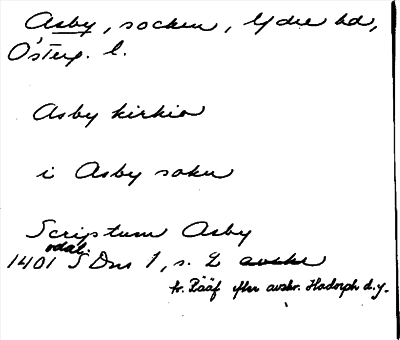 Asby, socken, Ydre hd,
Österg. l.
Asby kirkio
i Asby sokn
Scriptum Asby
odat.
1401 S Dns 1, s. 2 avskr
fr. Rääf efter avskr. Hadorph d.y.